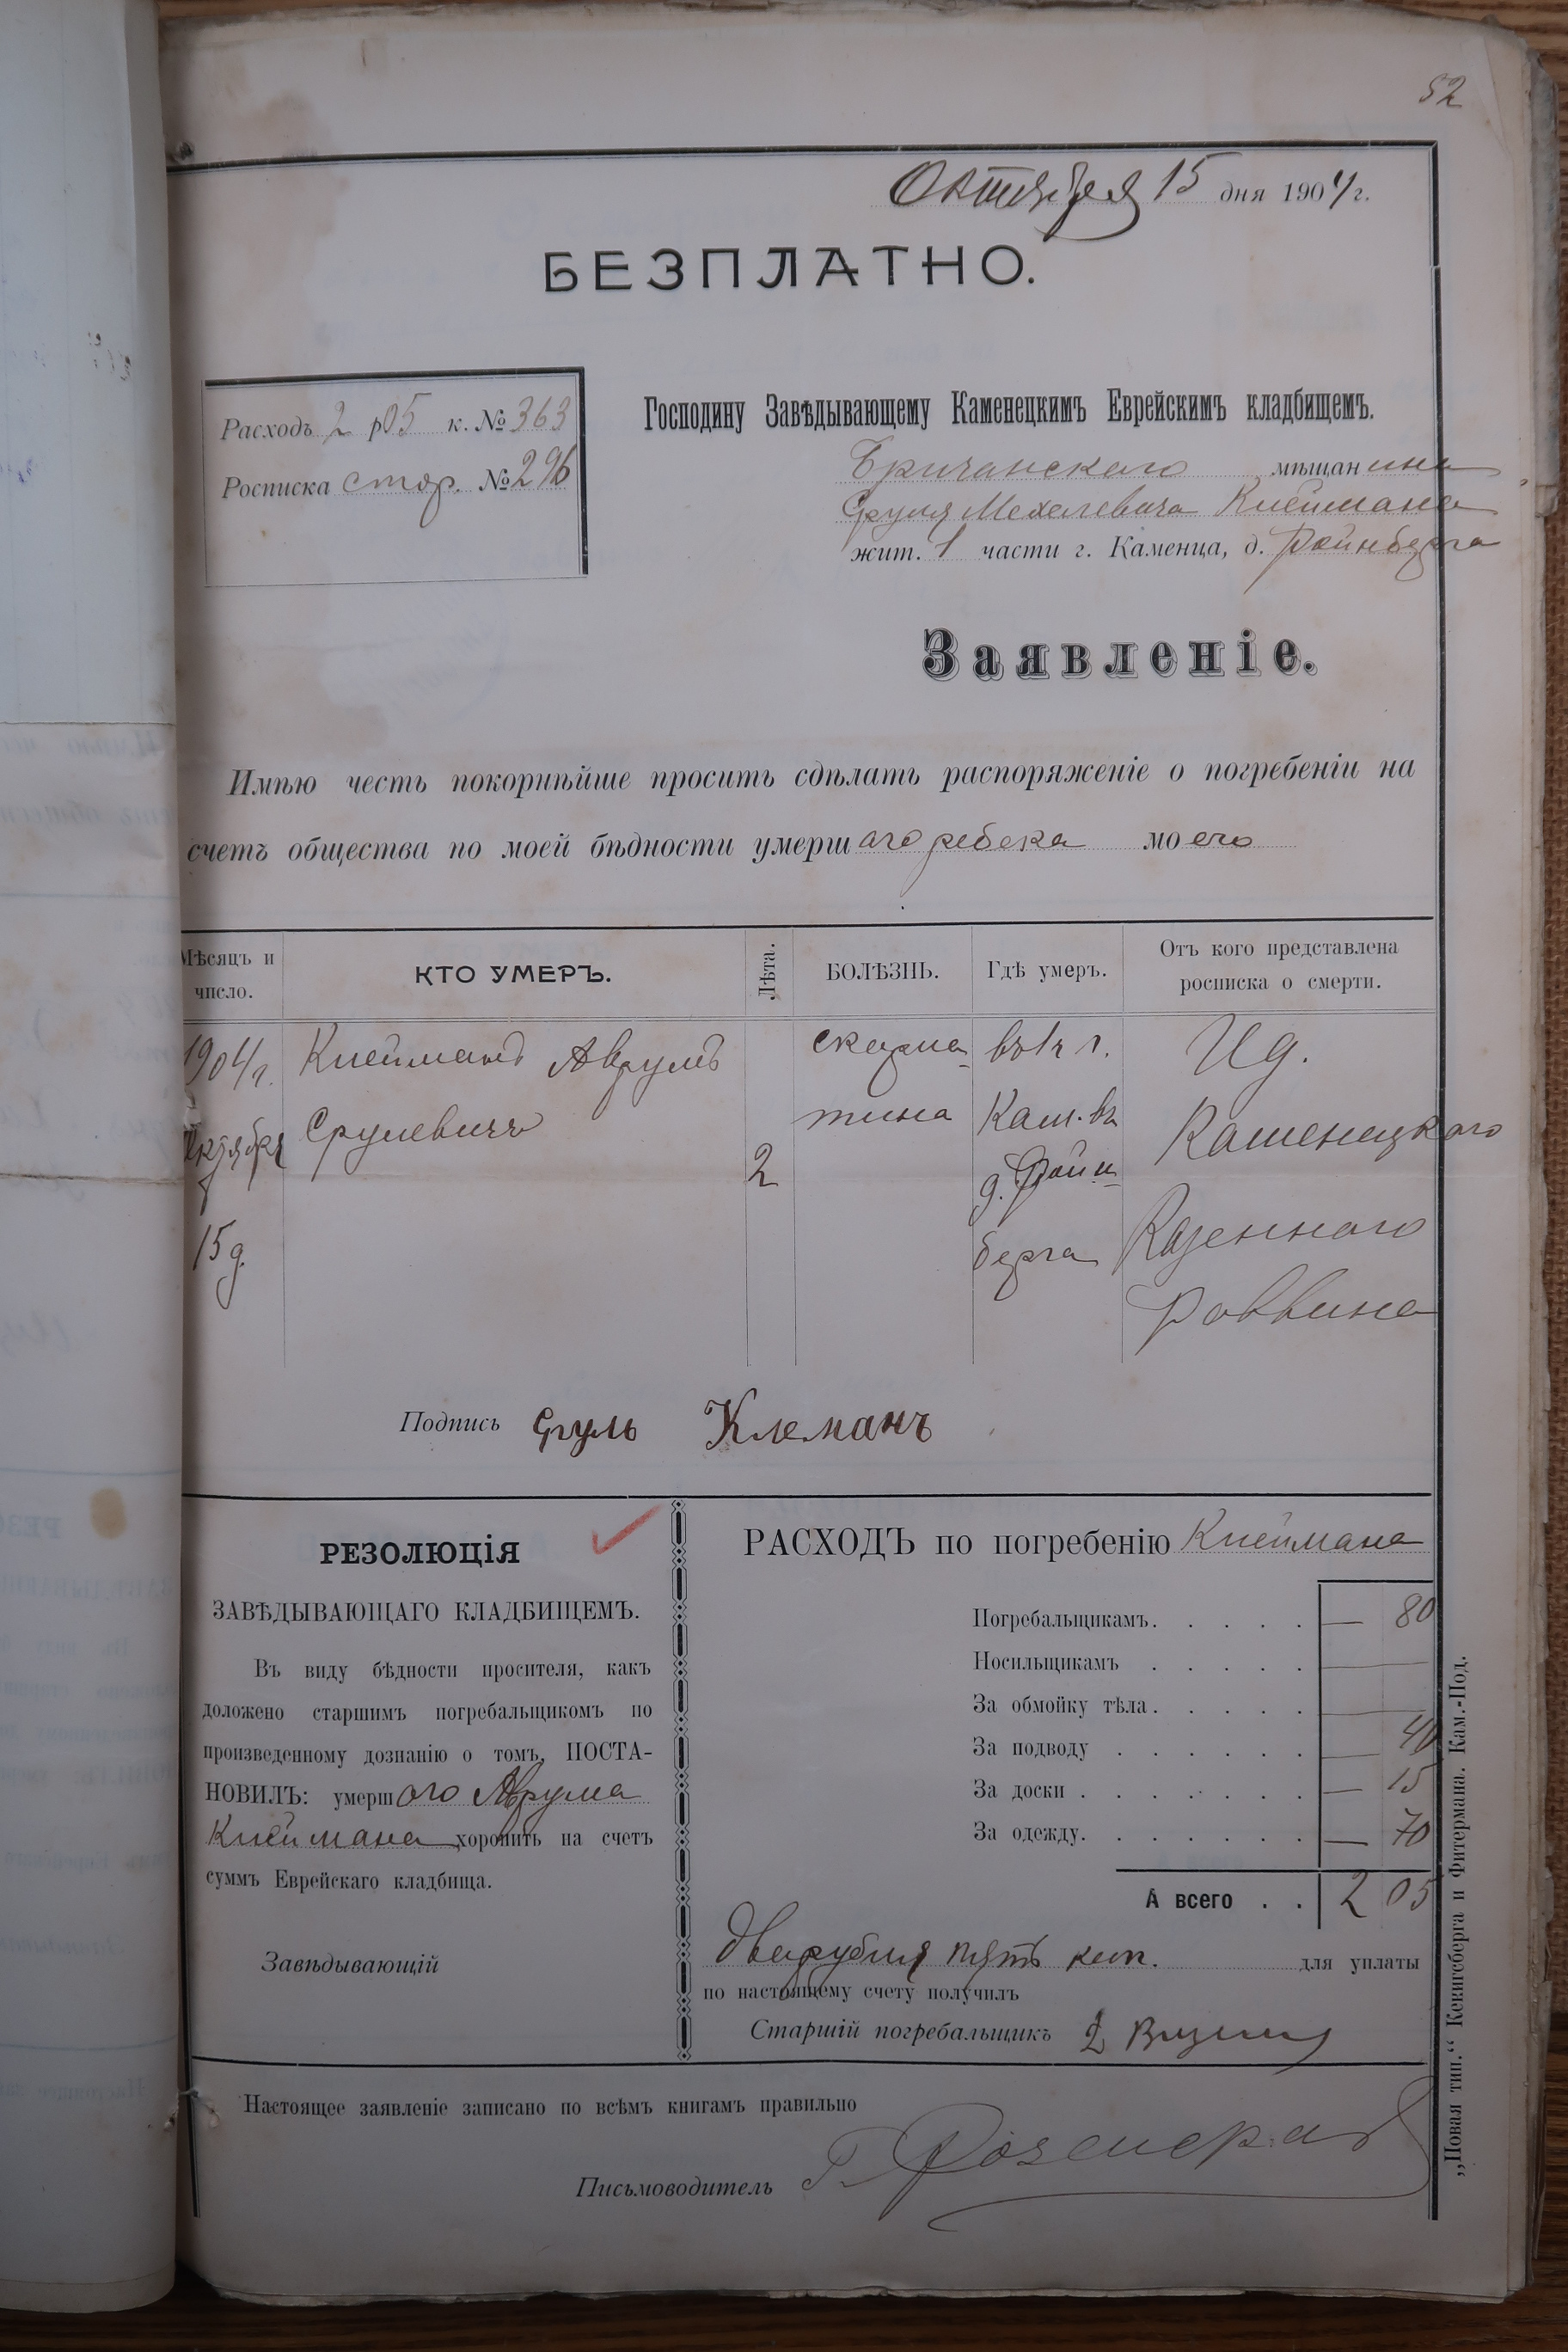 52
Октября 15 дня 1904 г.
БЕЗПЛАТНО.
Расходъ 2 р 05 к. № 363
Росписка стор. № 296
Господину Завѣдывающему Каменецкимъ Еврейскимъ кладбищемъ.
Бричанского мѣщанина
Сруля Мехелевича Клеймана
жит. 1 части г. Каменца, д. Ройнберга
Заявленіе.
Имѣю честь покорнѣйше просить сдѣлать распоряженіе о погребеніи на
счетъ общества по моей бѣдности умершаго ребека моего
Мѣсяцъ и число.
КТО УМЕРЪ.
Лѣта.
БОЛѢЗНЬ.
Гдѣ умеръ.
Отъ кого представлена росписка о смерти.
1904 г. Октября 15 д.
Клейманъ Аврумъ
Срулевичъ
2
скарла-
тина
въ 1 ч г.
Кам. въ
д. Ройн-
берга
Ид.
Каменецкого
Казенного
Раввина
Подпись Сруль Клеманъ
РЕЗОЛЮЦІЯ
ЗАВѢДЫВАЮЩАГО КЛАДБИЩЕМЪ.
Въ виду бѣдности просителя, какъ
доложено старшимъ погребальщикомъ по
произведенному дознанію о томъ, ПОСТА-
НОВИЛЪ: умершаго Аврума
Клеймана хоронить на счетъ
суммъ Еврейскаго кладбища.
Завѣдывающій
РАСХОДЪ по погребенію Клеймана
Погребальщикамъ. . . . . — 80
Носильщикамъ . . . . . —
За обмойку тѣла. . . . . —
За подводу . . . . . . — 40
За доски . . . . . . . — 15
За одежду. . . . . . . — 70
А всего . . 2 05
Два рубля пять коп. для уплаты
по настоящему счету получилъ
Старшій погребальщикъ
Настоящее заявленіе записано по всѣмъ книгамъ правильно
Письмоводитель
„Новая тип.“ Кенигсберга и Фитермана. Кам.-Под.